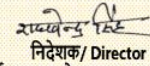 राघवेन्द्र सिंह
निदेशक/ Director